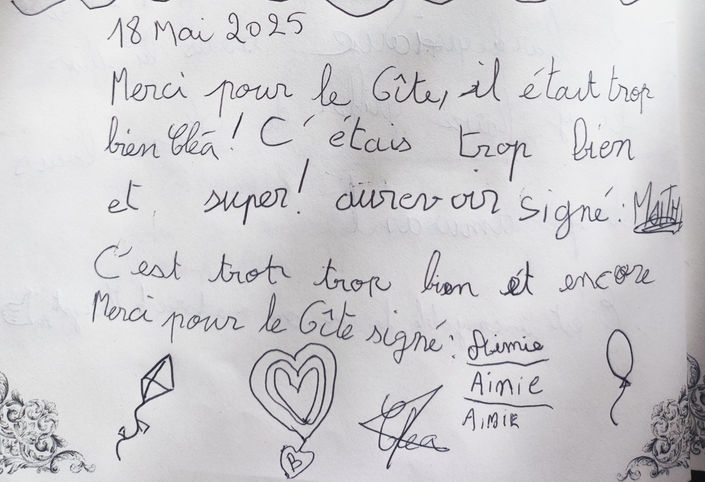 18 Mai 2025
Merci pour le Gîte, il était trop
bien Cléa! C'étais trop bien
et super! aurevoir signé:
C'est trop trop bien et encore
Merci pour le Gîte signé: Aimie
Aimie
AiMIE
B
Clea